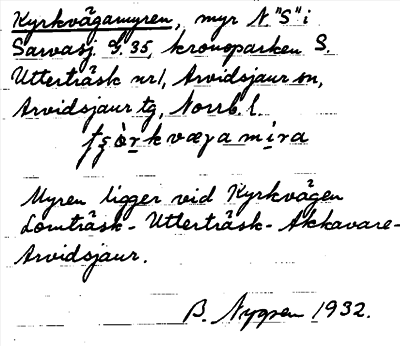 Kyrkvägamyren, myr N. "S" i
Sarvasj. G. 35, kronoparken S.
Utterträsk nr 1, Arvidsjaur sn,
Arvidsjaur tg, Norrb. l.
Myren ligger vid Kyrkvägen
Lomträsk - Utterträsk - Akkavare -
Arvidsjaur.
B. Nygren 1932.